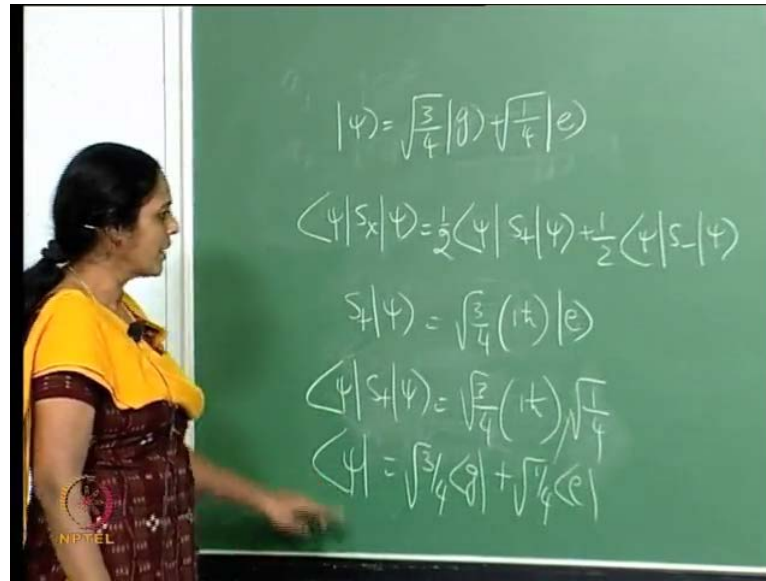 |ψ⟩ = √(3/4) |g⟩ + √(1/4) |e⟩
⟨ψ|Sx|ψ⟩ = 1/2 ⟨ψ|S+|ψ⟩ + 1/2 ⟨ψ|S-|ψ⟩
S+|ψ⟩ = √(3/4) (1ħ) |e⟩
⟨ψ|S+|ψ⟩ = √(3/4) (1ħ) √(1/4)
⟨ψ| = √3/4 ⟨g| + √1/4 ⟨e|
NPTEL